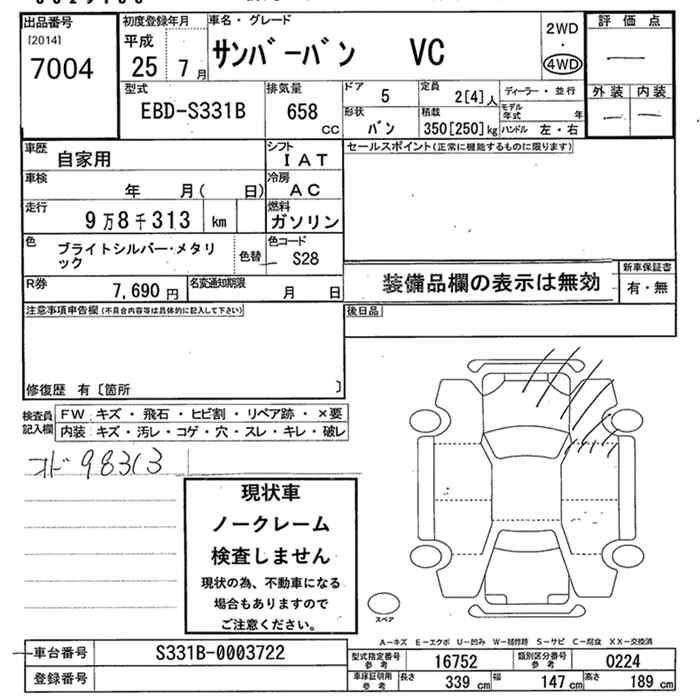 出品番号
[2014]
7004
初度登録年月
平成
25 7月
車名・グレード
サンバーバン VC
2WD
・
4WD
評価点
―
外装 内装
― ―
型式
EBD-S331B
排気量
658
CC
ドア
5
定員
2[4]人
ディーラー・並行
形状
バン
積載
350[250]kg
モデル年式 年
ハンドル 左・右
車歴
自家用
シフト
IAT
セールスポイント(正常に機能するものに限ります)
車検
年 月( 日)
冷房
AC
走行
9万8千313 km
燃料
ガソリン
色
ブライトシルバー・メタリ
ック
色替
色コード
S28
装備品欄の表示は無効
新車保証書
有・無
R券
7,690円
名変通知期限
月 日
注意事項申告欄(不具合内容等は具体的に記入して下さい)
後日品
修復歴 有〔箇所 〕
検査員
記入欄
FW キズ・飛石・ヒビ割・リペア跡・×要
内装 キズ・汚レ・コゲ・穴・スレ・キレ・破レ
オド 98313
現状車
ノークレーム
検査しません
現状の為、不動車になる
場合もありますので
ご注意ください。
スペア
A-キズ E-エクボ U-凹み W-補修跡 S-サビ C-腐食 XX-交換済
車台番号
S331B-0003722
登録番号
型式指定番号
参考
16752
類別区分番号
参考
0224
車庫証明用
参考
長さ
339 cm
幅
147 cm
高さ
189 cm